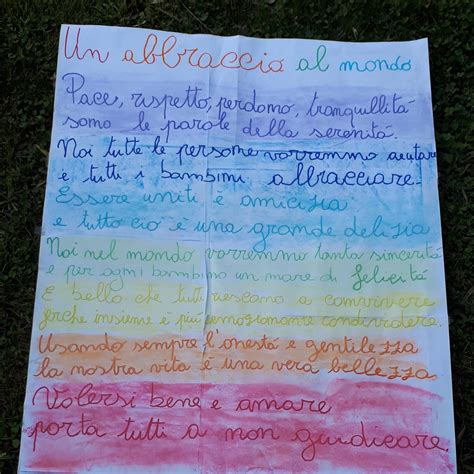 Un abbraccio al mondo
Pace, rispetto, perdono, tranquillitá
sono le parole della serenitá.
Noi tutte le persone vorremmo aiutare
e tutti i bambini abbracciare.
Essere uniti è amicizia
e tutto ciò è una grande delizia
Noi nel mondo vorremmo tanta sinceritá
e per ogni bambino un mare di felicitá
E bello che tutti riescano a convivere
perche insieme è più condividere.
Usando sempre l'onestá e gentilezza
la nostra vita è una vera bellezza.
Volersi bene e amare
porta tutti a non giudicare.